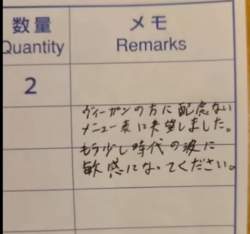 数量
Quantity
メモ
Remarks
2
ヴィーガンの方に配慮ない
メニュー表に失望しました。
もう少し時代の波に
敏感になってください。